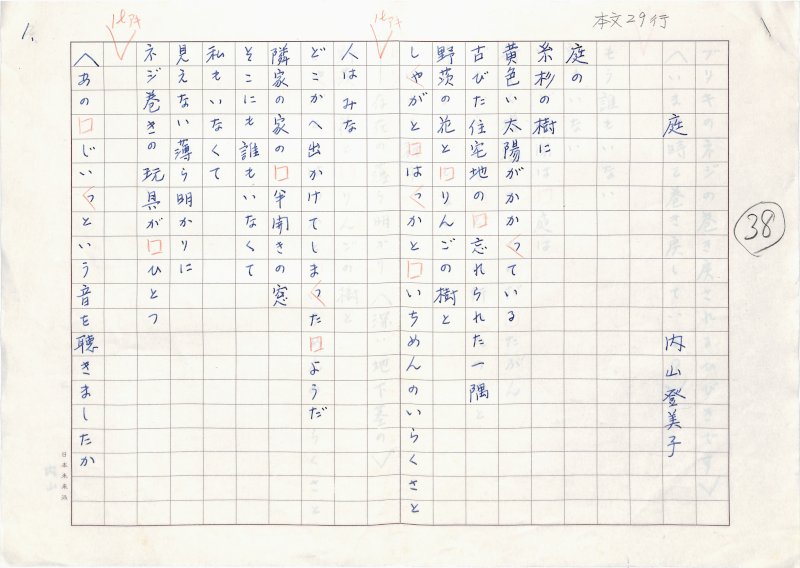 1.
1行アキ
1行アキ
本文29行
38
庭　内山登美子
庭の
糸杉の樹に
黄色い太陽がかかっている
古びた住宅地の□忘れられた一隅
野茨の花と□りんごの樹と
しゃがと□はっかと□いちめんのいらくさと
人はみな
どこかへ出かけてしまった□ようだ
隣家の家の□半開きの窓
そこにも誰もいなくて
私もいなくて
見えない薄ら明かりに
ネジ巻きの玩具が□ひとつ
〈あの□じいっという音を聴きましたか
日本未来派